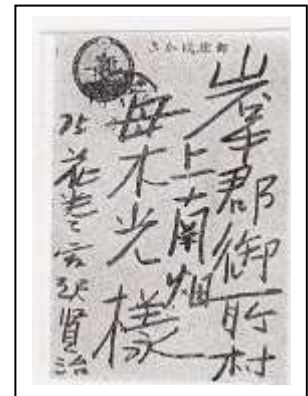 郵便はかき
岩手郡御所村
上南畑
母木光様
花巻 宮沢賢治